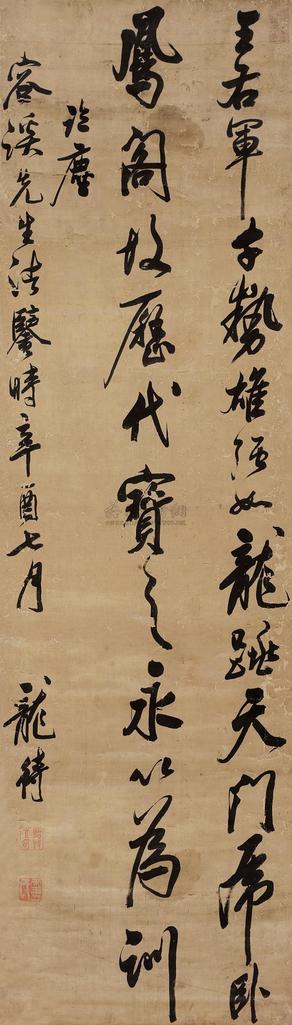 王右軍字勢雄強如龍跳天門虎臥
鳳閣故歷代寶之永以為訓
臨塵
容溪先生清鑒時辛酉七月
龍